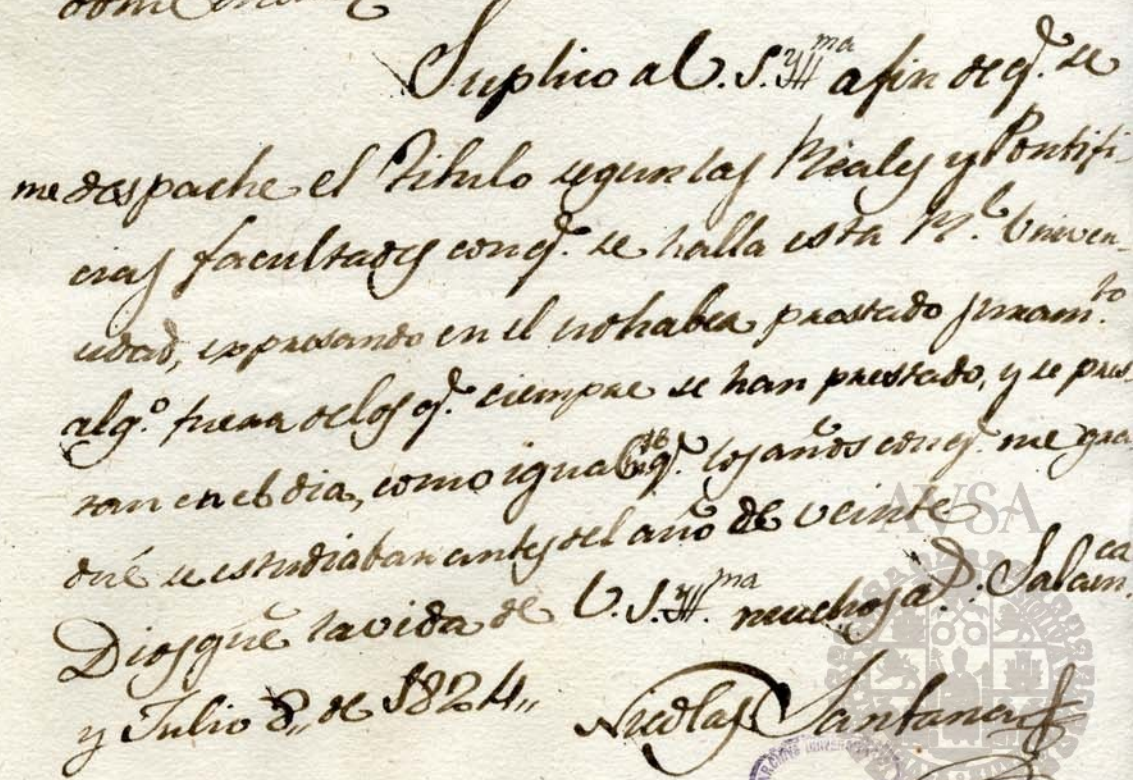 Suplico a V. S. Yllma a fin de q.e se
me despache el Titulo segun las Reales y Pontifi-
cias facultades con q.e se halla esta R.l Univer-
sidad, expresando en el no haber prestado juram.to
alg.o fuera de los q.e siempre se han prestado, y se pres-
tan en el dia, como igual q.e los años con q.e me gra
dué se estudiaban antes del año de veinte
Dios gũe la vida de V. S. Yllma muchos a.s Salam.ca
y Julio 8,, de 1824,,
Nicolas Santana
AUSA